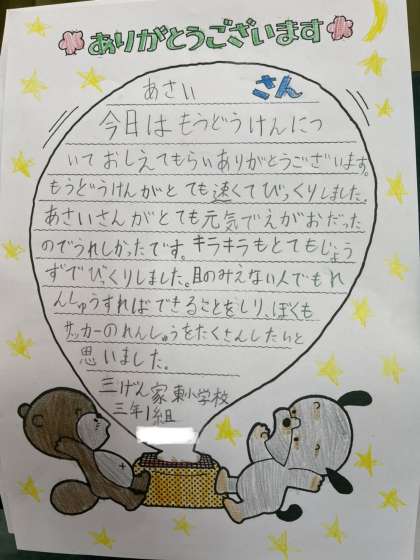 ありがとうございます
あさい さん
今日はもうどうけんにつ
いておしえてもらいありがとうございます。
もうどうけんがとても速くてびっくりしました。
あさいさんがとても元気でえがおだった
のでうれしかったです。キラキラもとてもじょう
ずでびっくりしました。目のみえない人でもれ
んしゅうすればできることをしり、ぼくも
サッカーのれんしゅうをたくさんしたいと
思いました。
三げん家東小学校
三年1組